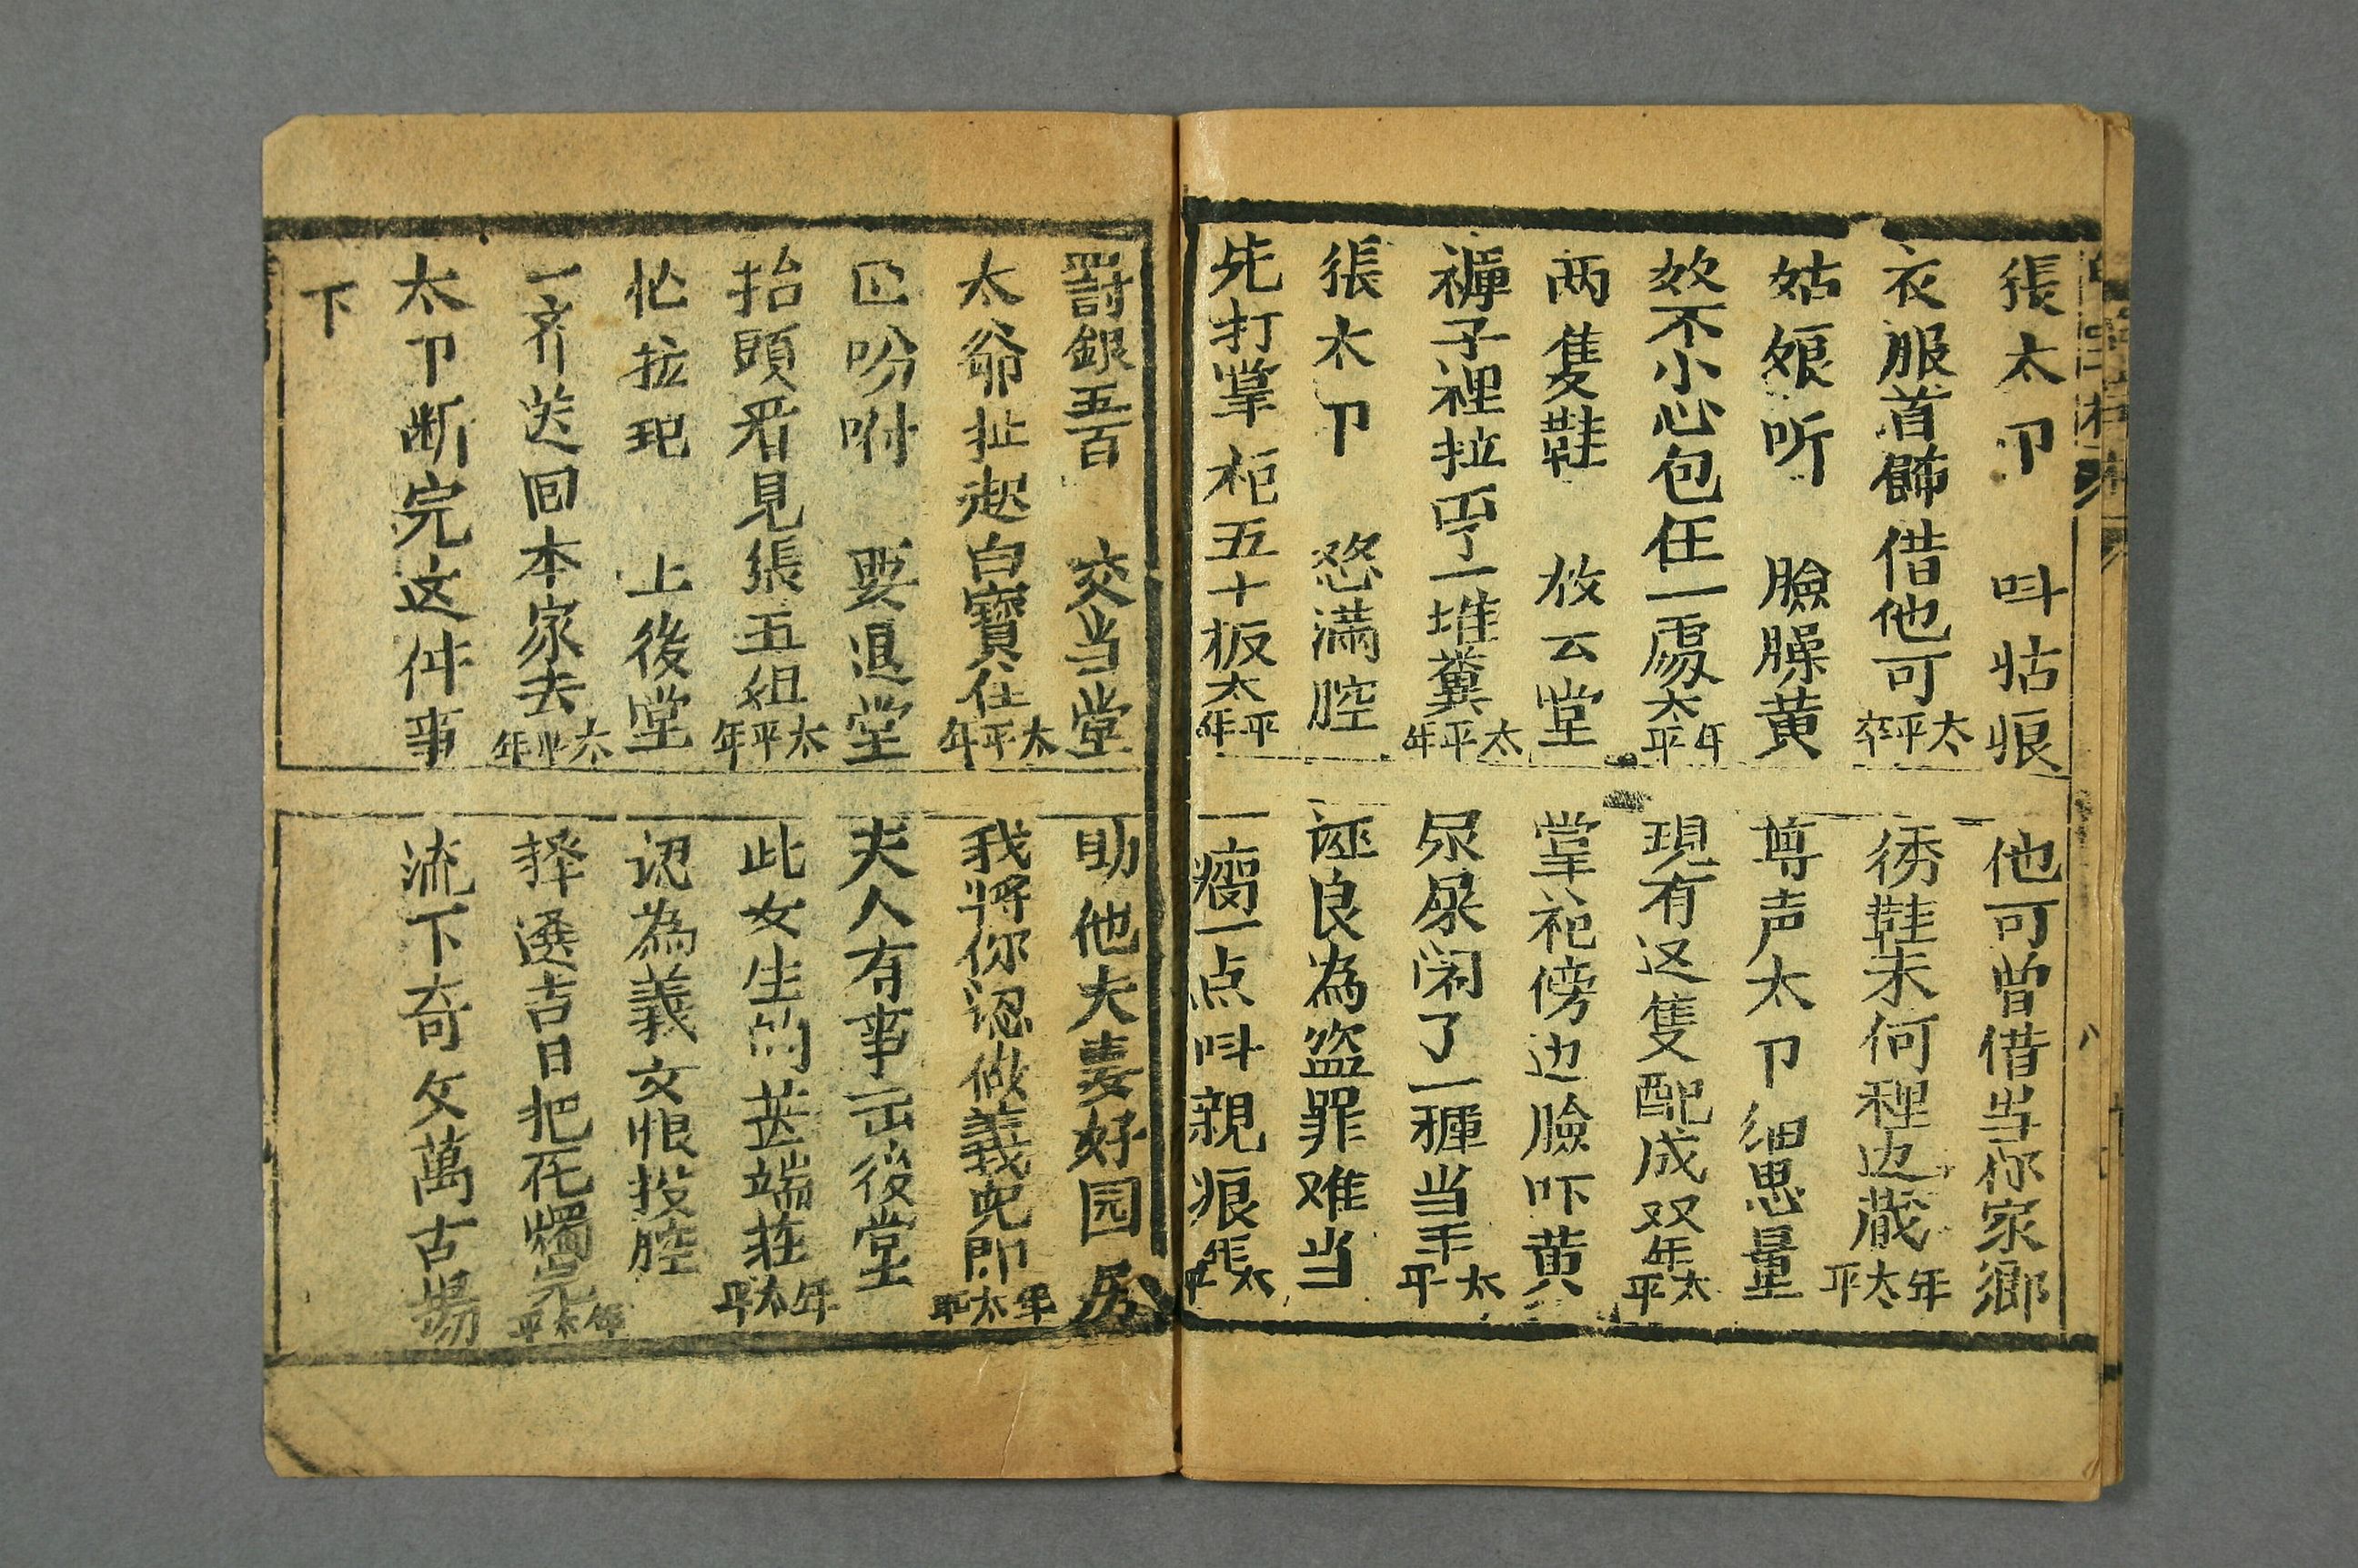 張太卩 呌姑痕 他可曾借当你家鄉
衣服首飾借他可太平年 綉鞋未何裡边蔵年太平
姑娘听 臉臊黄 尊声太卩细思量
奴不小心包在一處太平年 現有这隻配成双年太平
两隻鞋 放云堂 掌柜傍边臉吓黄
褲子裡拉一堆糞太平年 尿尿闹了一褲当年太平
張太卩 怒满腔 誣良為盗罪难当
先打掌柜五十板太平年 一瘸一点呌親痕年太平
罰銀五百 交当堂 助他夫妻好园房
太爺扯起白寳住太平年 我將你認做義児郎年太平
囬吩咐 要退堂 夫人有事云後堂
抬頭看見張五姐太平年 此女生的甚端荘年太平
忙拉把 上後堂 认為義女恨投腔
一齐送回本家去太平年 择選吉日把花燭完年太平
太卩断完这件事 流下奇文萬古揚
下